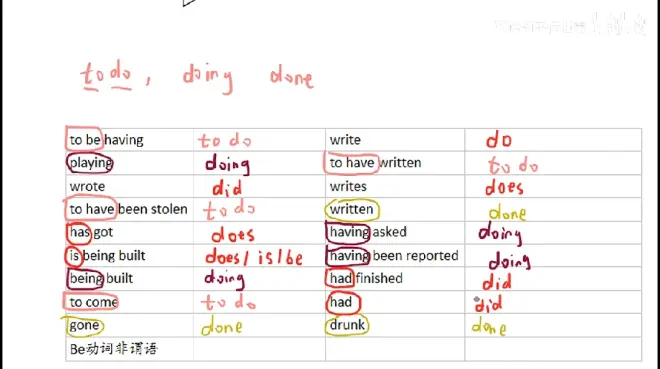 to do, doing done
to be having to do write do
playing doing to have written to do
wrote did writes does
to have been stolen to do written done
has got does having asked doing
is being built does/is/be having been reported doing
being built doing had finished did
to come to do had did
gone done drunk done
Be动词非谓语